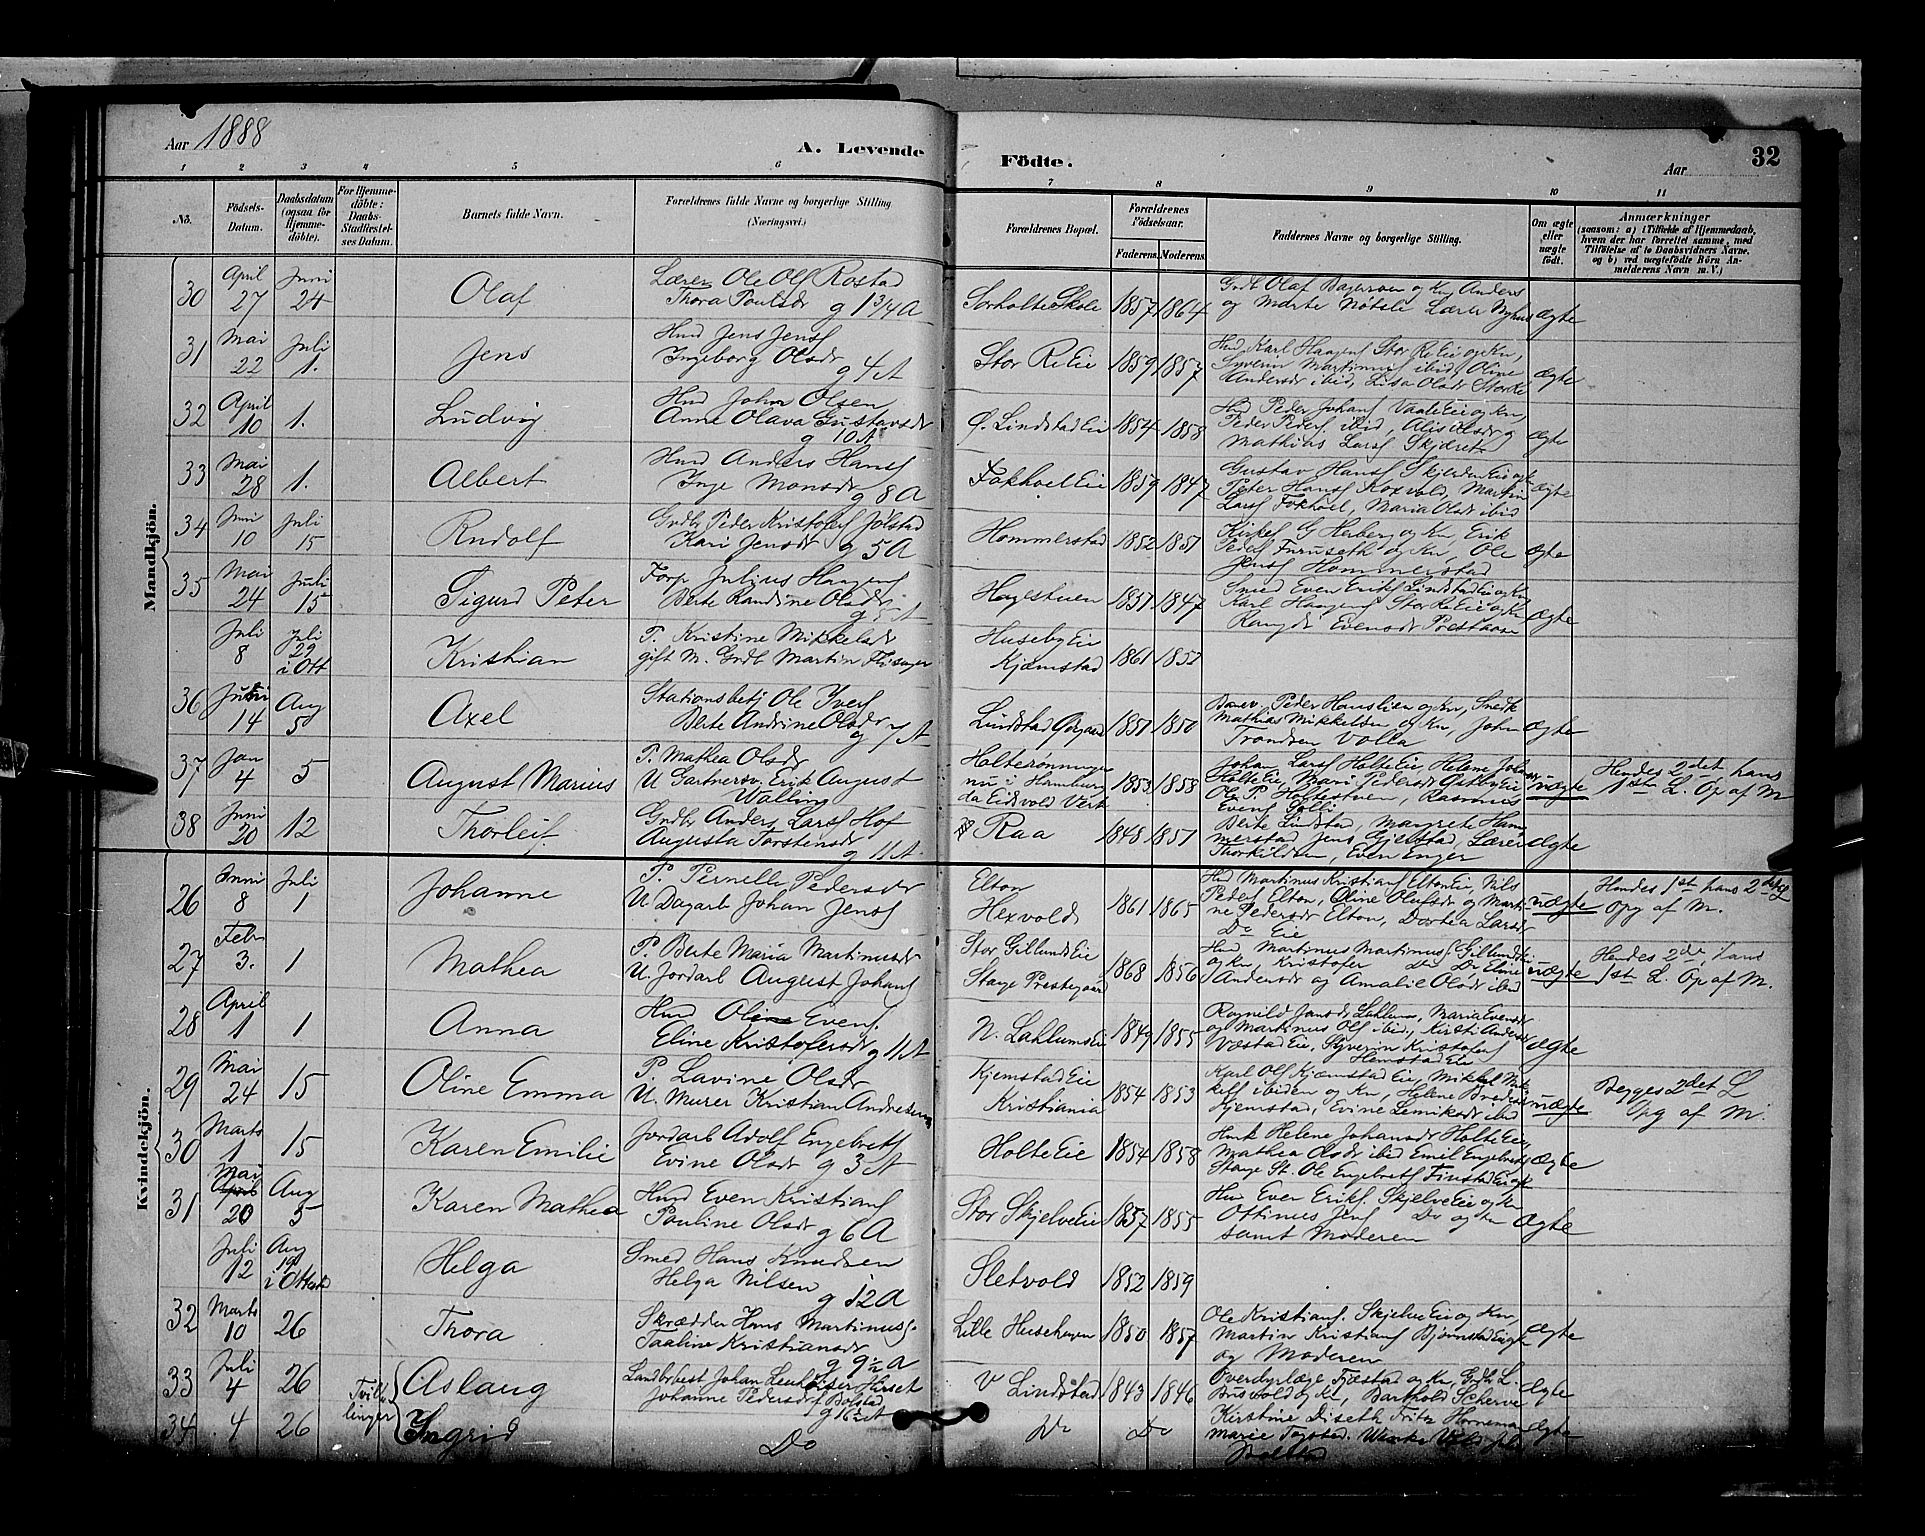 Aar 1888
A. Levende
Födte.
Aar
32
1 2 3 4 5 6 7 8 9 10 11
No.
Födsels-Datum.
Daabsdatum (ogsaa for Hjemme-döbte).
For Hjemme-döbte: Daabs-Stadfæstel-ses Datum.
Barnets fulde Navn.
Forældrenes fulde Navne og borgerlige Stilling (Næringsvei.)
Forældrenes Bopæl.
Forældrenes Födselsaar.
Faderens. Moderens.
Faddernes Navne og borgerlige Stilling.
Om ægte eller uægte födt.
Anmærkninger
(saasom: a) i Tilfælde af Hjemmedaab, hvem der har forrettet samme, med Tilföielse af to Daabsvidners Navne, og b) ved uægtefödte Börn An-melderens Navn m. V.)
Mandkjön.
30 April 27 Juni 24 Olaf
Lærer Ole Ols Rostad
Thora Poulsdr g 1 3/4 A
Sorholte Skole 1857 1864
Grdb Olaf og Kn, Anders
og Marte Nötsle Lærer Nyhus ægte
31 Mai 22 Juli 1. Jens
Hmd Jens Jens
Ingeborg Olsdr g 4 A
Stor Re Eie 1859 1857
Hmd Karl Haagens Stor Re Eie og Kn,
Syverin Martinus ibid, Oline
Andersdr ibid, Lisa Olsdr ægte
32 April 10 1. Ludvig
Hmd John Olsen
Anne Olava Gustavsdr
g 10 A
Ö. Lindstad Eie 1854 1858
Hmd Peder Johans Vaale Eie og Kn,
Peder Peders ibid, Alis Olsdr og
Mathias Lars Skjæret ægte
33 Mai 28 1. Albert
Hmd Anders Hans
Inge Monsdr g 8 A
Fokhoel Eie 1859 1847
Gustav Hans Skjerden Eie og Kn
Peter Hans Koxvold, Martin
Lars Fokhoel, Maria Olsdr ibid ægte
34 Juni 10 Juli 15 Rudolf
Grdb Peder Kristofers Jölstad
Kari Jensdr g 5 A
Hommerstad 1852 1857
Kirkes G Herberg og Kn, Erik
Peders Furuseth og Kn, Ole
Jens Hommerstad ægte
35 Mai 24 Juli 15 Sigurd Peter
Forp Julius Haagens
Berte Randine Olsdr
Haglstuen 1857 1847
Smed Even Eriks Lindstad Eie og Kn
Karl Haagens Stor Re Eie og Kn
Evensdr ægte
Juli 8 Juli 29 i Ott Kristian
P. Kristine Mikkelsdr
gift M. Grdb Martin
Huseby Eie
Kjæmstad 1861 1852
36 Juni 14 Aug 5 Axel
Stationsbetj Ole Ivers
Berte Andrine Olsdr g 7 A
Lindstad 1857 1850
Peder Hauslien og Kn, Smedk
Mathias Mikkelsen og Kn, John
Trondsen Volla ægte
37 Jan 4 5 August Marius
P. Mathea Olsdr
U Gartnersv. Erik August
Walling
Holterönningen
nu i Hamburg
da Eidsvold Verk 1853 1858
Johan Lars Holte Eie, Helene Johansdr
Holte Eie, Mari Pedersdr Östby Eie
Ole P Holtestuen, Rasmus
Evens Solli uægte
Hendes 2det hans
1ste L. Op af M
38 Juni 20 12 Thorleif.
Grdb Anders Lars Hof
Augusta Torstensdr
g 11 A
Raa 1848 1857
Berte Lindstad, Margrete Ham
merstad Jens Gjelstad, Lærer
Thorkildsen, Even Enger ægte
Kvindekjön.
26 Juni 8 Juli 1 Johanne
P. Pernelle Pedersdr
U. Dagarb Johan Jens
Elton
Hexvold 1861 1865
Hmd Martinus Kristians Elton Eie, Nils
Peders Elton, Oline Olufsdr og Marti
ne Pedersdr Elton, Dortea Larsdr
Do Eie uægte
Hendes 1ste hans 2det L
Opg af M.
27 Febr 3. 1 Mathea
P. Berte Maria Martinusdr
U. Jordarb August Johans
Stor Gillund Eie
Stange Prestegaard 1868 1856
Hmd Martinus Martinus Gillund Eie
og Kn, Kristofer Do Do, Eline
Andersdr og Amalie Olsdr ibid uægte
Hendes 2de hans
1st L. Op af M.
28 April 1 1 Anna
Hmd Ol Evens.
Eline Kristofersdr g 11 A
N. Lahlum Eie 1849 1855
Ragnild Jansdr Lahlum, Maria Evensdr
og Martinus Ols ibid, Kirsti Andersdr
Væstad Eie, Syverin Kristofers
Hemstad Eie ægte
29 Mai 24 15 Oline Emma
P. Lavine Olsdr
U. Murer Kristian Andresen
Kjemstad Eie
Kristiania 1854 1853
Karl Ols Kjæmstad Eie, Mikkel Mik
kels ibiden og Kn, Helene
Kjemstad, Evine ibid uægte
Begges 2det L
Opg af M.
30 Marts 1 15 Karen Emilie
Jordarb Adolf Engebrets
Evine Olsdr g 3 A
Holte Eie 1854 1858
Hmk Helene Johansdr Holte Eie,
Mathea Olsdr ibid Emil Engebrets
Stange St. Ole Engebrets Finstad Eie ægte
31 Mai 20 Aug 5 Karen Mathea
Hmd Even Kristians
Pauline Olsdr g 6 A
Stor Skjelve Eie 1857 1855
Hmd Even Eriks. Skjelve Eie og Kn
Ottinus Jens Do og Kn
samt Moderen ægte
Juli 12 Aug 19 i Ottest Helga
Smed Hans Knudsen
Helga Nilsen
g 12 A
Sletvold 1852 1859
32 Marts 10 26 Thora
Skrædder Hans Martinus
Taaline Kristiansdr
g 9 1/2 A
Lille Husehagen 1850 1857
Ole Kristians. Skjelve Eie og Kn,
Martin Kristians Björnstad Eie
og Moderen ægte
33 Juli 4 26 Tvil-linger Aslaug
Landbrbest Johan Hirset
Johanne Pedersdr Bolstad
g 16 1/2 A
V Lindstad 1843 1846
Overdyrlæge Fjæstad og Kn, Grdb L.
Brusvold og Kn, Barthold Scherve ægte
34 4 26 Ingrid
Do
Do Do
Kirstine Diseth Fritz Horneman
Marie Tagstad. ægte